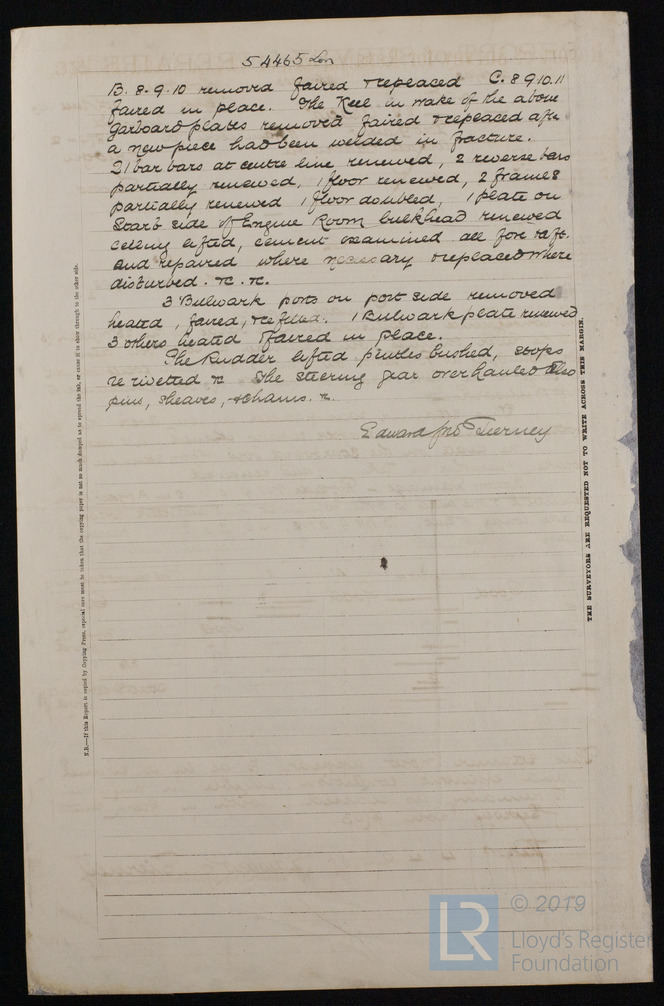 54465 Lon
B. 8.9.10 removed faired & replaced C. 8 9 10.11
faired in place. The Keel in wake of the above
garboard plates removed faired & replaced aft
a new piece had been welded in fracture.
21 bar bars at centre line renewed, 2 reverse bars
partially renewed, 1 floor renewed, 2 frames
partially renewed 1 floor doubled, 1 plate on
Starb side of Engine Room bulkhead renewed
ceiling lifted, cement examined all fore & aft.
and repaired where necessary & replaced where
disturbed. &c. &c.
3 Bulwark ports on port side removed
heated, faired, & refitted. 1 Bulwark plate renewed
3 others heated & faired in place.
The Rudder lifted pintles bushed, stops
re rivetted &c The steering gear overhauled also
pins, sheaves, & chains. &c.
Edward Jno Tierney
N.B.—If this Report is copied by Copying Press, especial care must be taken that the copying paper is not so much damped as to spread the ink, or cause it to show through to the other side.
THE SURVEYORS ARE REQUESTED NOT TO WRITE ACROSS THIS MARGIN.
LR
© 2019
Lloyd's Register
Foundation